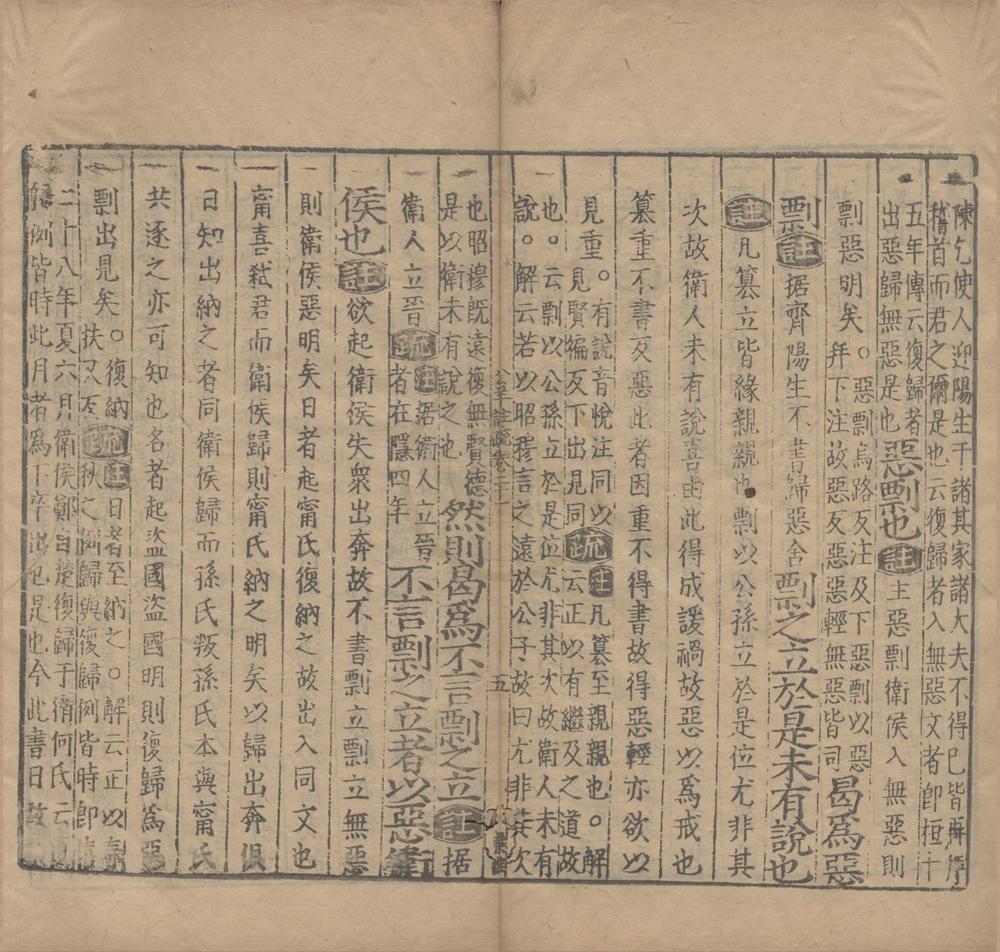 陳乞使人迎陽生于諸其家諸大夫不得已皆再拜
稽首而君之爾是也云復歸者入無惡文者即桓十
五年傳云復歸者
出惡歸無惡是也惡剽也註主惡剽衛侯入無惡則
剽惡明矣。惡剽烏路反注及下惡剽以惡
拜下注故惡反惡惡輕無惡皆同曷為惡
剽註据齊陽生不書歸惡舍剽之立於是未有說也
註凡纂立皆緣親親也剽以公孫立於是位尤非其
次故衛人未有說喜由此得成諼禍故惡以為戒也
篡重不書反惡此者因重不得書故得惡輕亦欲以
見重。有說音悅注同以
見賢徧反下出見同疏註凡篡至親親也。解
云正以有繼及之道故
也。云剽以公孫立於是位尤非其次故衛人未有
說。解云若以昭穆言之遠於公子故曰尤非其次
公羊註疏卷二十一 五
也昭穆既遠復無賢德
是以衛未有說之也然則曷為不言剽之立註据
衛人立晉疏註据衛人立晉
者在隱四年不言剽之立者以惡衛
侯也註欲起衛侯失衆出奔故不書剽立剽立無惡
則衛侯惡明矣日者起甯氏復納之故出入同文也
甯喜弒君而衛侯歸則甯氏納之明矣以歸出奔俱
日知出納之者同衛侯歸而孫氏叛孫氏本與甯氏
共逐之亦可知也名者起盜國盜國明則復歸為惡
剽出見矣。復納
扶又反疏註日者至納之。解云正以春
秋之例歸與復歸例皆時即僖
二十八年夏六月衛侯鄭自楚復歸于衛何氏云
歸例皆時此月者為下卒出也是也今此書日故